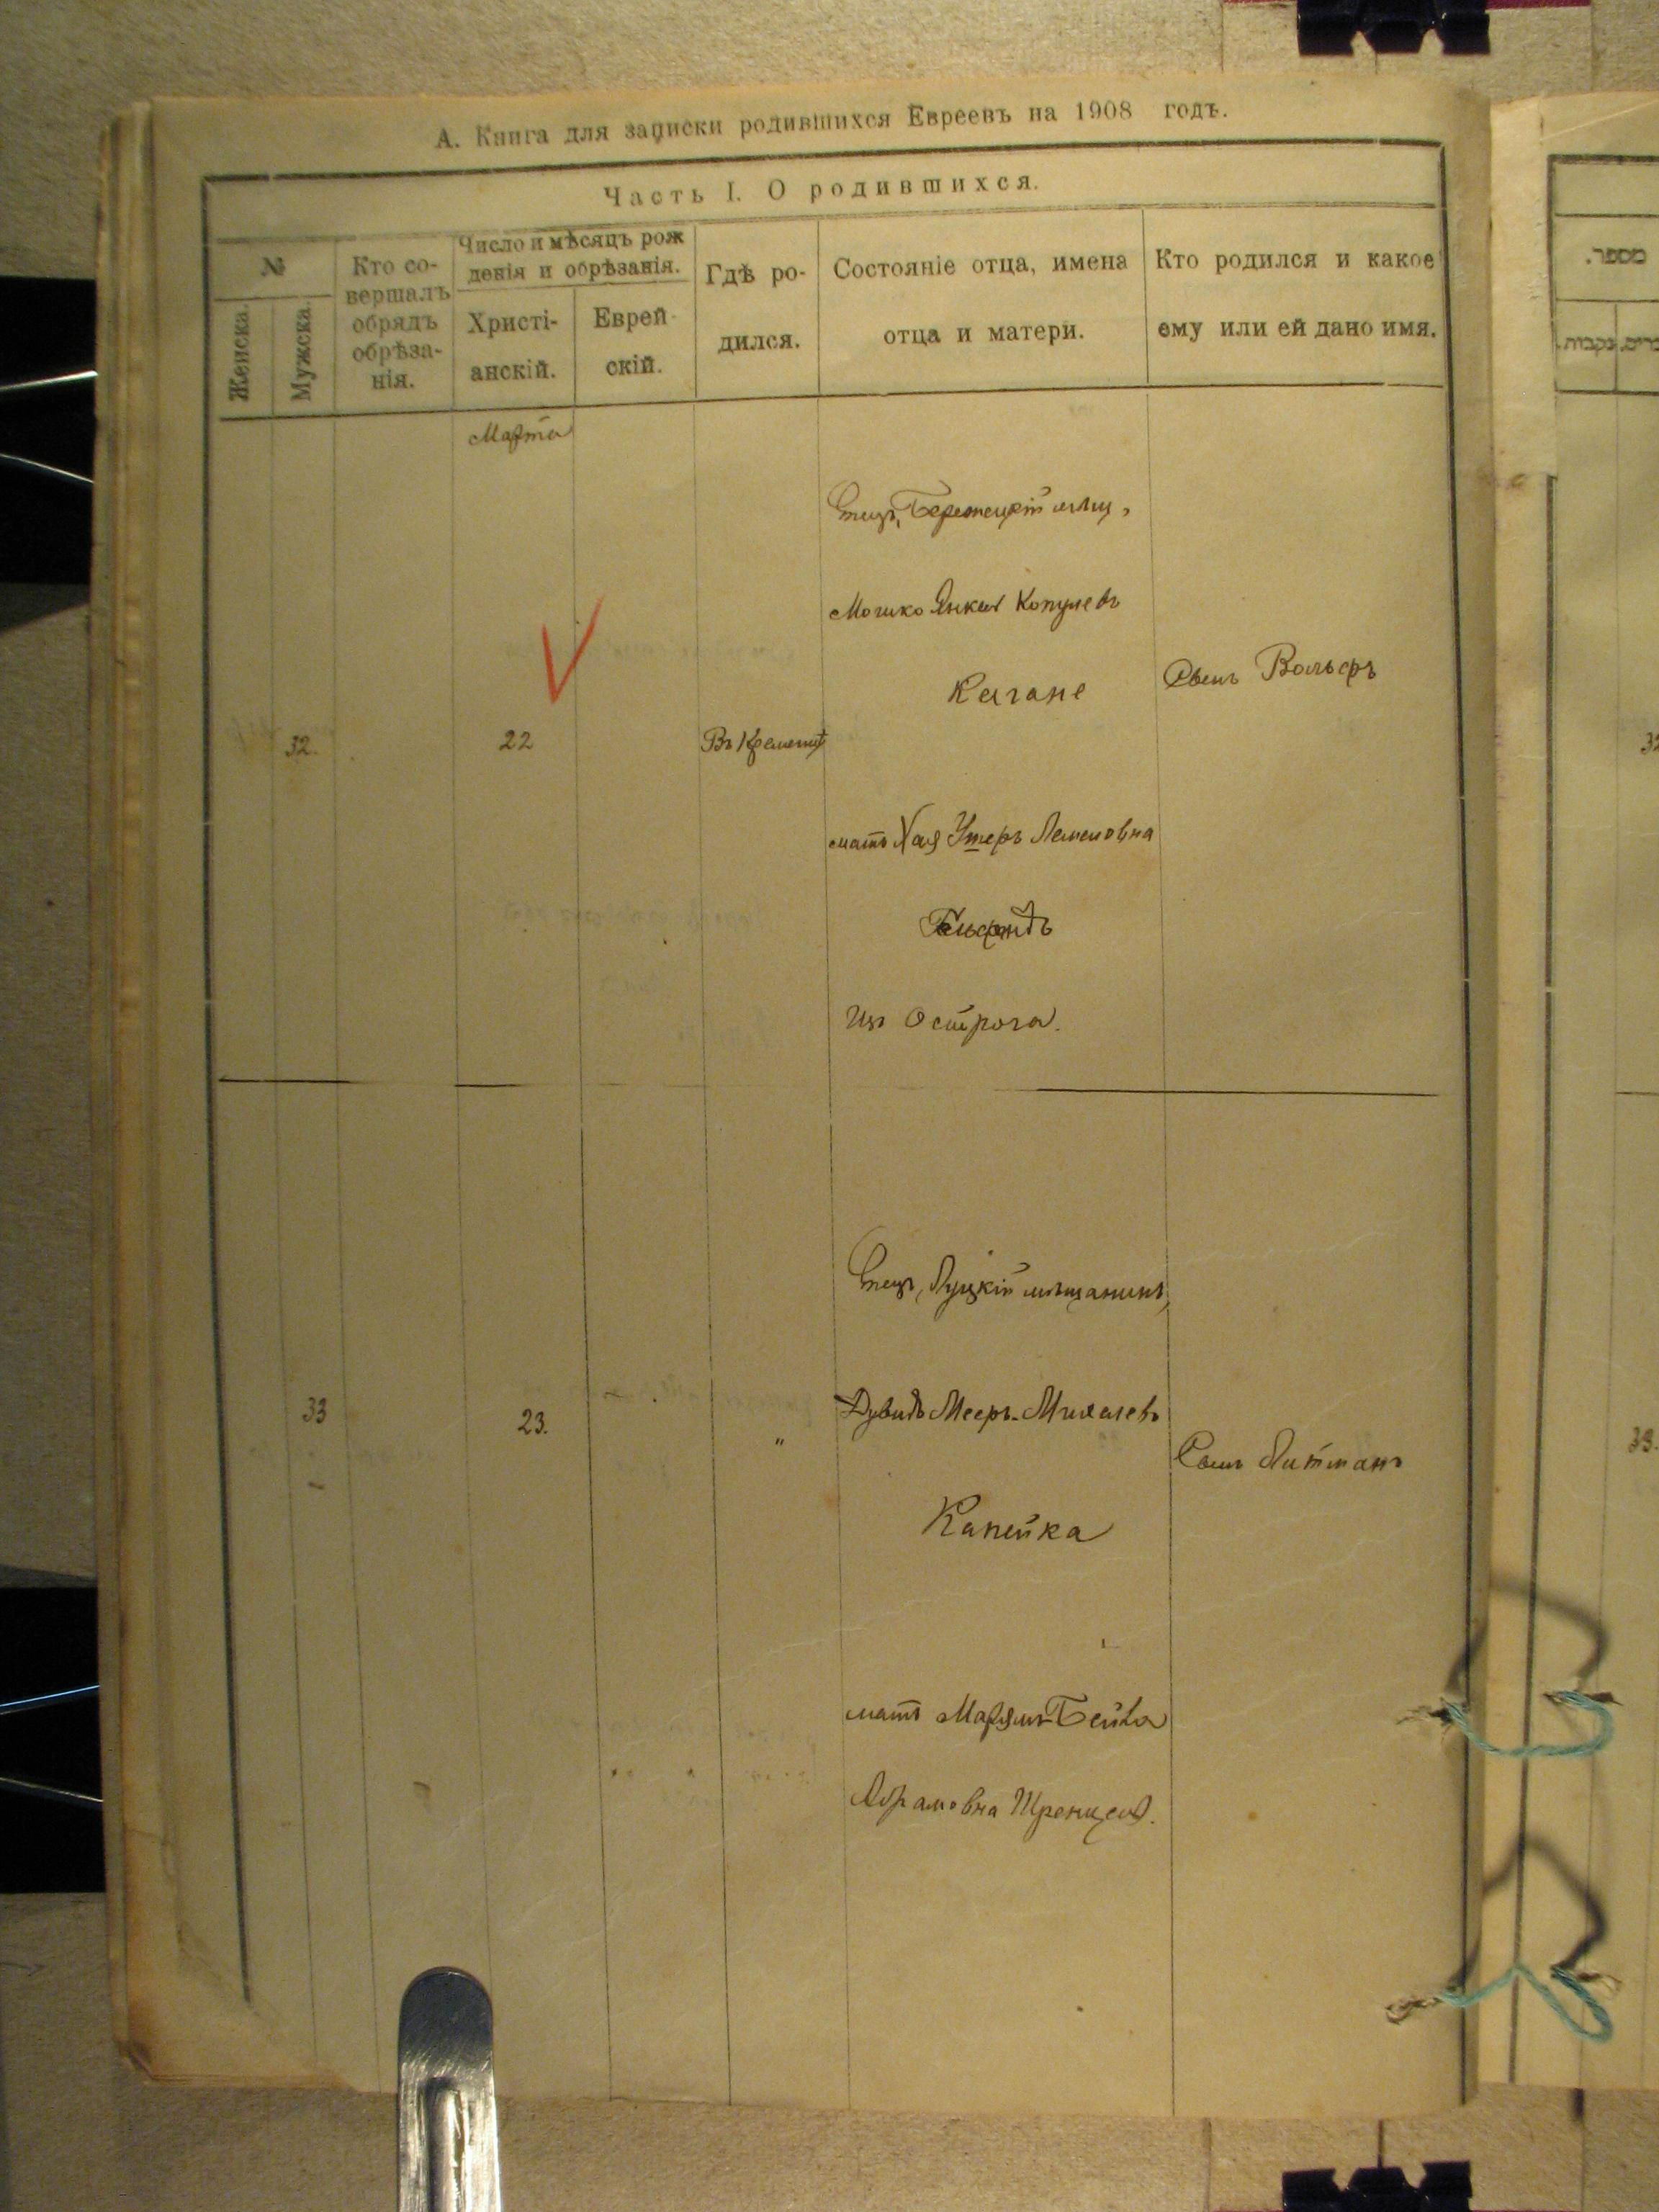 А. Книга для записки родившихся Евреевъ на 1908 годъ.
Часть I. О родившихся.
№
Женска.
Мужска.
Кто со-
вершалъ
обрядъ
обрѣза-
нія.
Число и мѣсяцъ рож
денія и обрѣзанія.
Христі-
анскій.
Еврей-
скій.
Гдѣ ро-
дился.
Состояніе отца, имена
отца и матери.
Кто родился и какое
ему или ей дано имя.
Марта
32.
22
Въ Кременцѣ
Отецъ, мѣщ.
Мошко Янкел
Кагане
мать Хая Лемелова
Изъ Острога.
Сынъ Вольфъ
33
23.
"
Отецъ, Луцкій мѣщанинъ,
Дувидъ Мееръ-Михелевъ
Капейка
мать Марямъ-Бейла
Абрамовна
Сынъ Литманъ
מספר.
נקבות.
32
33.